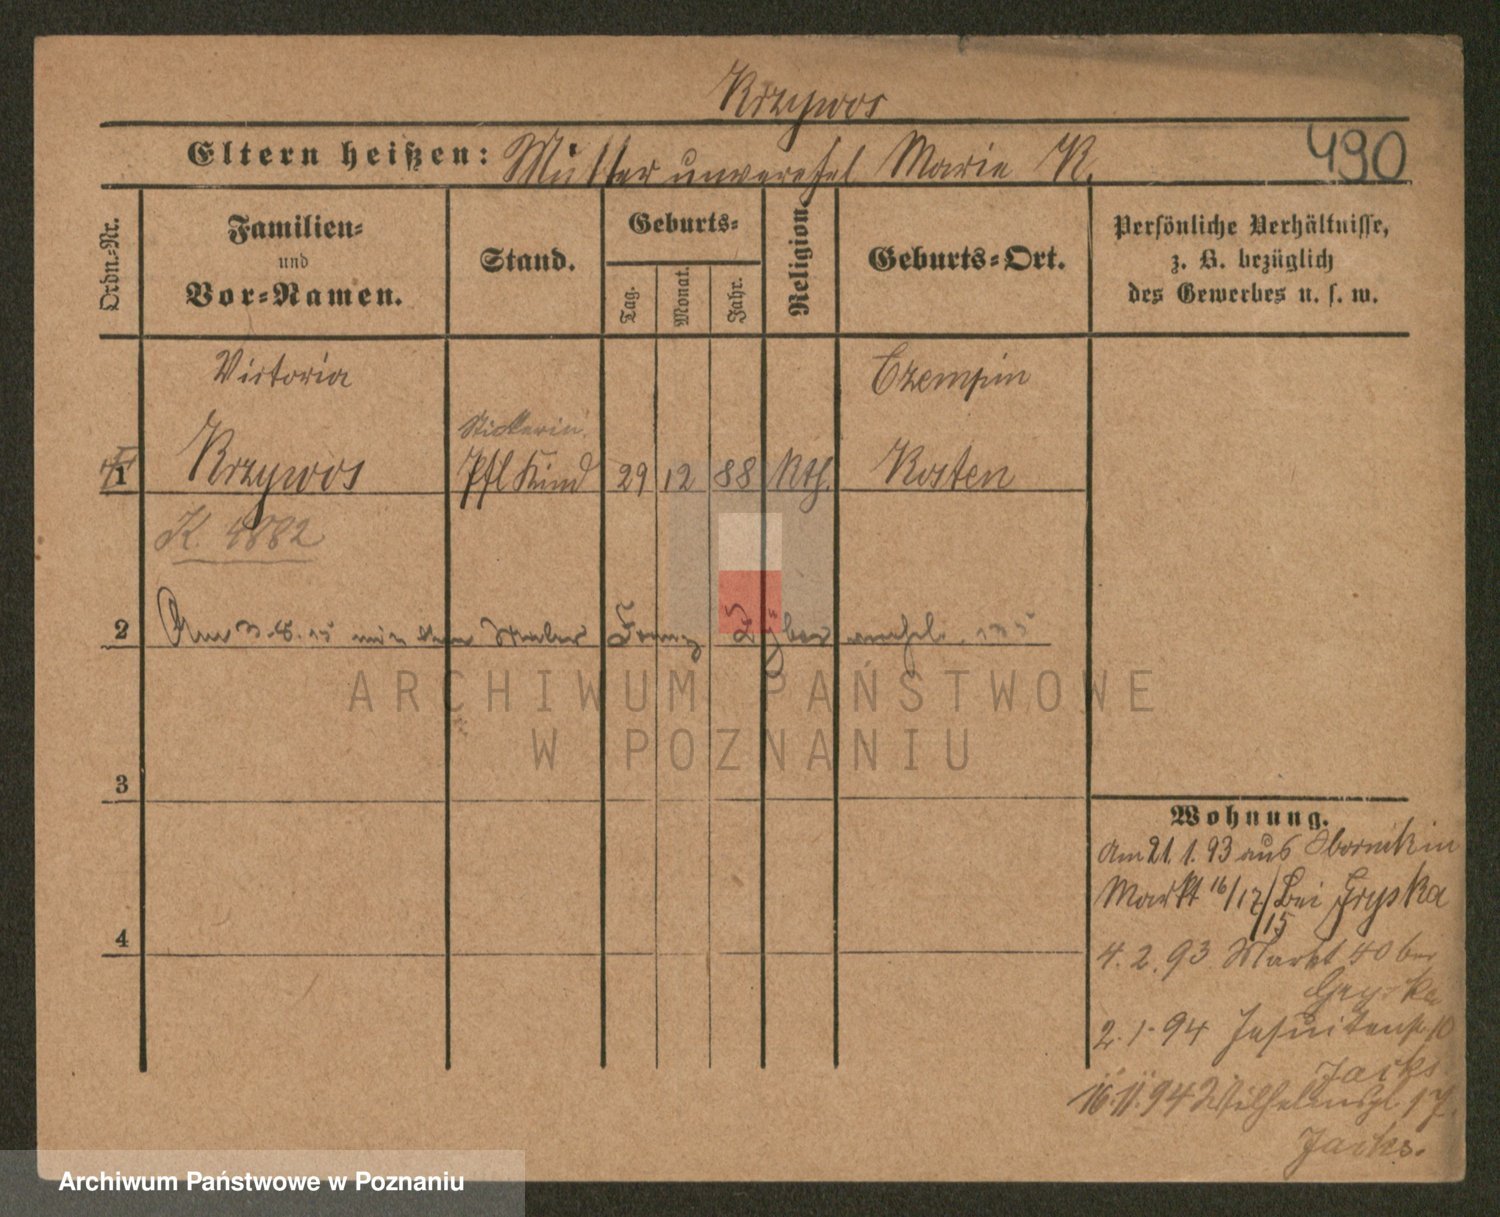 Krzywos
Eltern heißen: Mutter unverehel Marie K.
490
Ordn.-Nr.
Familien-
und
Vor-Namen.
Stand.
Geburts-
Tag.
Monat.
Jahr.
Religion.
Geburts-Ort.
Persönliche Verhältnisse,
z. B. bezüglich
des Gewerbes u. s. w.
Victoria
Czempin
Stickerin.
1 Krzywos Pfl Kind 29 12 88 Kth. Kosten
K. 4882
2 Am 3.8.15 mit dem Maler Franz verehel.
ARCHIWUM PAŃSTWOWE
W POZNANIU
3
4
Wohnung.
Am 21.1.93 aus Obornik in
Markt 16/17/15 bei Gryska
4.2.93 Markt 40 bei
Gryska
2.1.94 Jesuitenstr. 10
Jacks.
16.11.94 Wilhelmspl. 17.
Jacks.
Archiwum Państwowe w Poznaniu